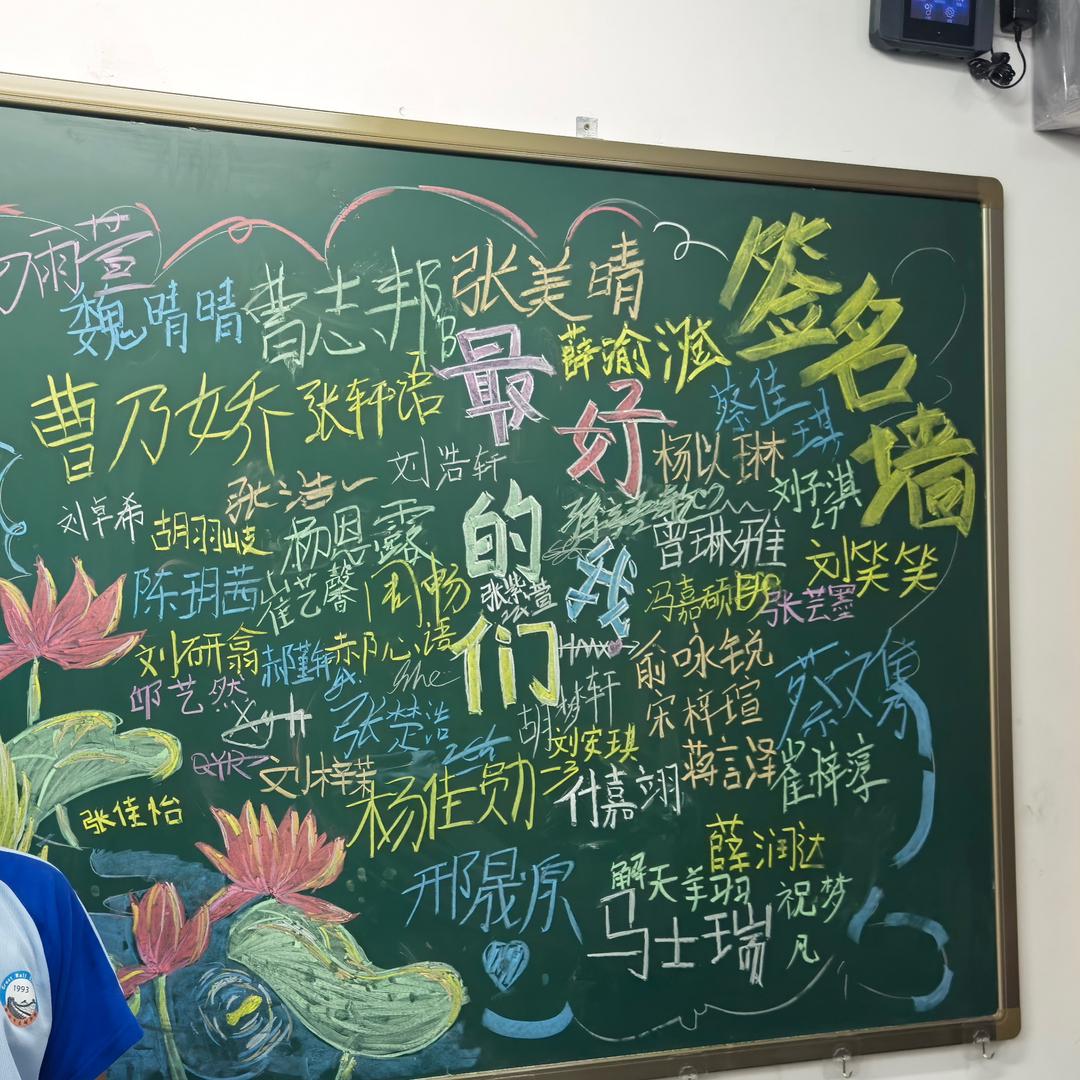 签名墙
最好的我们
雨萱
魏晴晴
曹志邦
张美晴
曹乃娇
张轩语
薛渝滋
蔡佳琪
刘浩轩
杨以琳
张浩
刘子淇
刘卓希
胡羽岐
杨恩露
曾琳雅
刘笑笑
陈玥茜
崔艺馨
周畅
张紫萱
冯嘉硕
张芸墨
刘研翕
郝瑾轩
郝心语
she
HMX
俞咏锐
蔡文隽
邱艺然
XyH
张楚浩
胡梦轩
宋梓瑄
QYR
刘梓茉
刘安琪
蒋言泽
崔梓淳
张佳怡
杨佳勋
付嘉翊
薛润达
邢晟原
解天羊羽
祝梦凡
马士瑞
Great Wall
1993